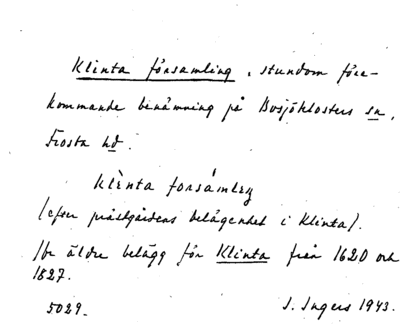 Klinta församling, stundom före-
kommande benämning på Bosjöklosters sn,
Frosta hd.
klènta forsàmleŋ
(efter prästgårdens belägenhet i Klinta).
Jfr äldre belägg för Klinta från 1620 och
1827.
5029.
I. Ingers 1943.